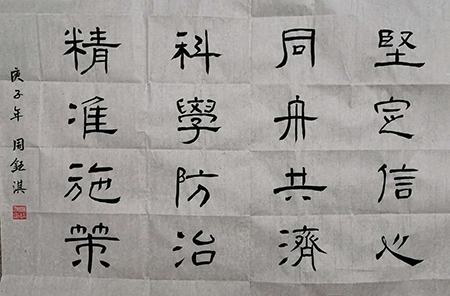 堅定信心
同舟共濟
科學防治
精准施策
庚子年 周鉅淇